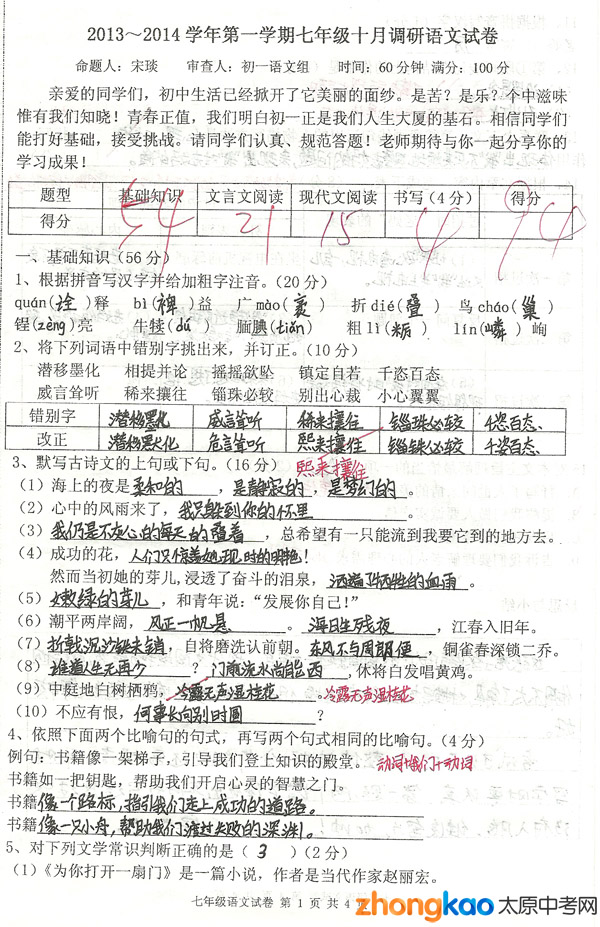 2013～2014学年第一学期七年级十月调研语文试卷
命题人：宋琰 审查人：初一语文组 时间：60分钟 满分：100分
亲爱的同学们，初中生活已经掀开了它美丽的面纱。是苦？是乐？个中滋味
惟有我们知晓！青春正值，我们明白初一正是我们人生大厦的基石。相信同学们
能打好基础，接受挑战。请同学们认真、规范答题！老师期待与你一起分享你的
学习成果！
题型 基础知识 文言文阅读 现代文阅读 书写(4分) 得分
得分 54 21 15 4 94
一、基础知识（56分）
1、根据拼音写汉字并给加粗字注音。（20分）
quán(诠)释 bì(裨)益 广mào(袤) 折dié(叠) 鸟cháo(巢)
锃(zèng)亮 牛犊(dú) 腼腆(tiǎn) 粗lì(粝) lín(嶙)峋
2、将下列词语中错别字挑出来，并订正。（10分）
潜移墨化 相提并论 摇摇欲坠 镇定自若 千恣百态
威言耸听 稀来攘往 锱珠必较 别出心裁 小心翼翼
错别字 潜移墨化 威言耸听 稀来攘往 锱珠必较 千恣百态
改正 潜移默化 危言耸听 熙来攘往 锱铢必较 千姿百态
熙来攘往
3、默写古诗文的上句或下句。（16分）
（1）海上的夜是柔和的，是静寂的，是梦幻的。
（2）心中的风雨来了，我只躲到你的怀里。
（3）我仍是不灰心的每天的叠着，总希望有一只能流到我要它到的地方去。
（4）成功的花，人们只惊羡她现时的明艳！
然而当初她的芽儿,浸透了奋斗的泪泉，洒遍了牺牲的血雨。
（5）嫩绿的芽儿，和青年说："发展你自己！"
（6）潮平两岸阔，风正一帆悬。海日生残夜，江春入旧年。
（7）折戟沉沙铁未销，自将磨洗认前朝。东风不与周郎便，铜雀春深锁二乔。
（8）谁道人生无再少？门前流水尚能西,休将白发唱黄鸡。
（9）中庭地白树栖鸦，冷露无声湿桂花。冷露无声湿桂花
（10）不应有恨，何事长向别时圆？
4、依照下面两个比喻句的句式，再写两个句式相同的比喻句。（4分）
例句：书籍像一架梯子，引导我们登上知识的殿堂。 动词+我们+动词
书籍如一把钥匙，帮助我们开启心灵的智慧之门。
书籍像一个路标，指引我们走上成功的道路。
书籍像一只小舟，帮助我们渡过失败的深渊。
5、对下列文学常识判断正确的是（3）（2分）
（1）《为你打开一扇门》是一篇小说，作者是当代作家赵丽宏。
七年级语文试卷 第1页 共4页
zhongkao 太原中考网